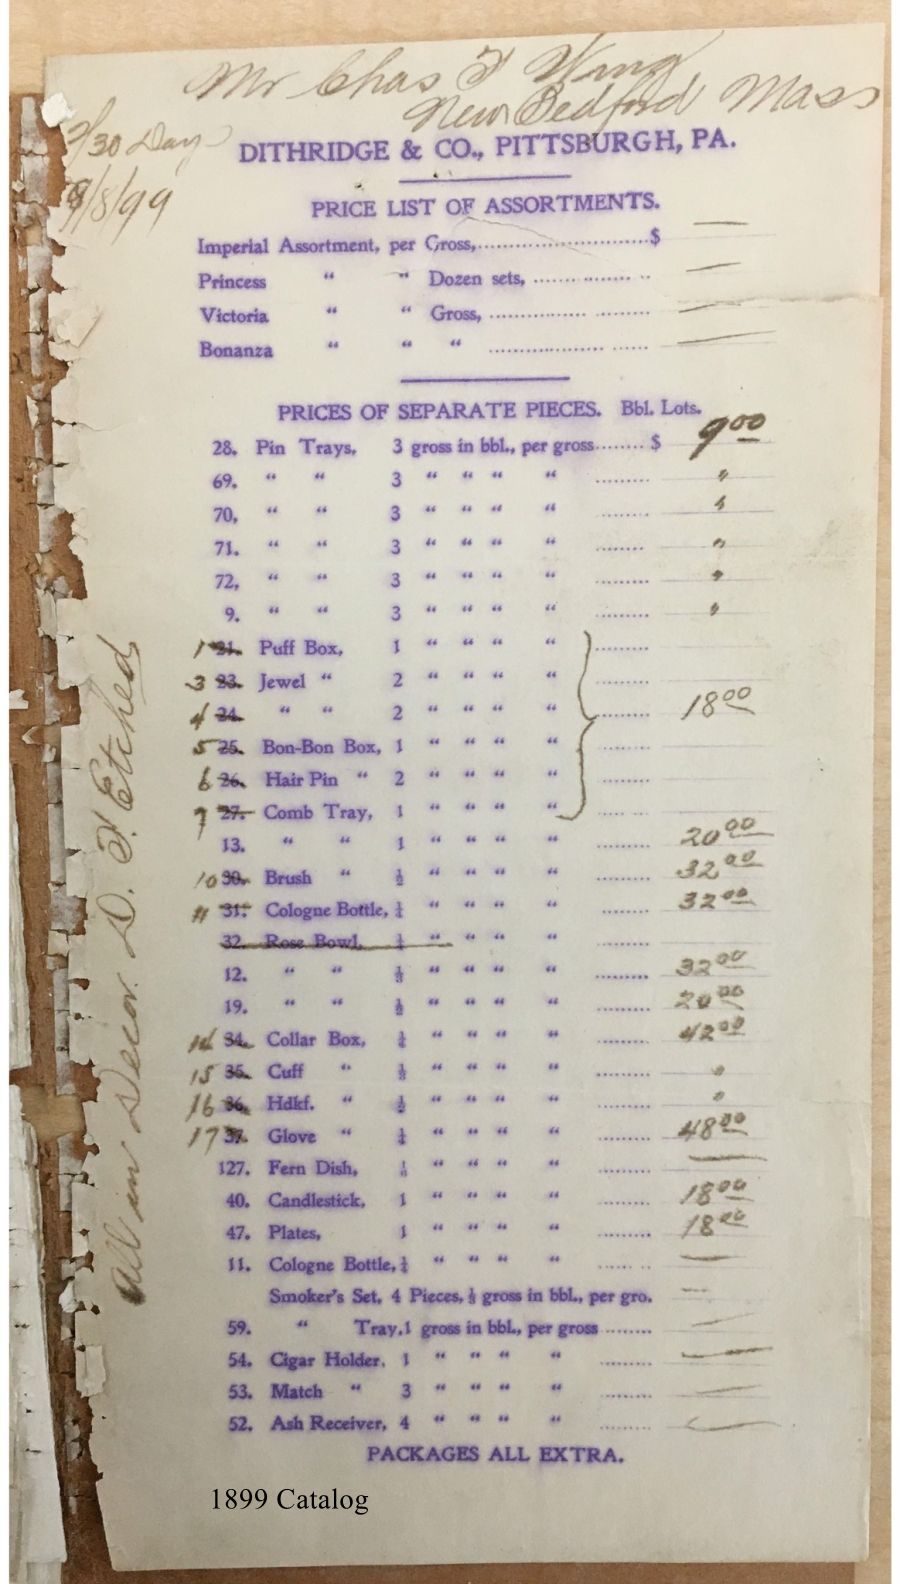 Mr Chas F Wing
New Bedford Mass
2/30 Days
9/8/99
DITHRIDGE & CO., PITTSBURGH, PA.
PRICE LIST OF ASSORTMENTS.
Imperial Assortment, per Gross,..............................$ —
Princess " " Dozen sets, .................... —
Victoria " " Gross, ........................ —
Bonanza " " " ........................ —
PRICES OF SEPARATE PIECES. Bbl. Lots.
28. Pin Trays, 3 gross in bbl., per gross........ $ 9 00
69. " " 3 " " " " ......... "
70, " " 3 " " " " ......... "
71. " " 3 " " " " ......... "
72, " " 3 " " " " ......... "
9. " " 3 " " " " ......... "
1 21. Puff Box, 1 " " " " .........
3 23. Jewel " 2 " " " " .........
4 24. " " 2 " " " " ......... 18 00
5 25. Bon-Bon Box, 1 " " " " .........
6 26. Hair Pin " 2 " " " " .........
7 27. Comb Tray, 1 " " " " .........
13. " " 1 " " " " ......... 20 00
10 30. Brush " ½ " " " " ......... 32 00
11 31. Cologne Bottle, " " " " ......... 32 00
32. Rose Bowl, " " " " .........
12. " " " " " " ......... 32 00
19. " " ½ " " " " ......... 20 00
14 34. Collar Box, " " " " ......... 42 00
15 35. Cuff " " " " " ......... "
16 36. Hdkf. " ½ " " " " ......... "
17 37. Glove " " " " " ......... 48 00
127. Fern Dish, " " " " ......... —
40. Candlestick, 1 " " " " ......... 18 00
47. Plates, 1 " " " " ......... 18 00
11. Cologne Bottle, " " " " ......... —
Smoker's Set, 4 Pieces, gross in bbl., per gro. —
59. " Tray, 1 gross in bbl., per gross ......... —
54. Cigar Holder, 1 " " " " ......... —
53. Match " 3 " " " " ......... —
52. Ash Receiver, 4 " " " " ......... —
PACKAGES ALL EXTRA.
All in Decor. D. F. Etched
1899 Catalog